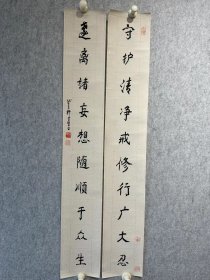 守护清净戒修行广大忍
远离诸妄想随顺于众生